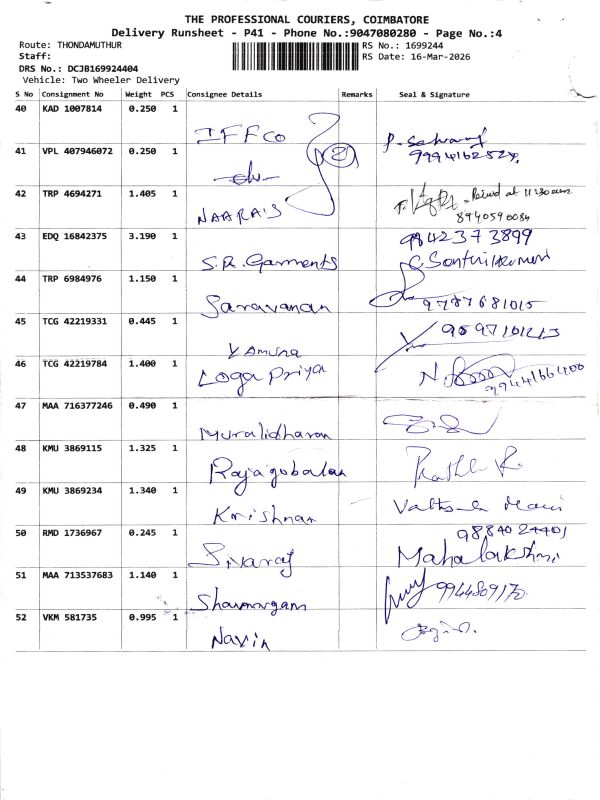 THE PROFESSIONAL COURIERS, COIMBATORE
Delivery Runsheet - P41 - Phone No.:9047080280 - Page No.:4
Route: THONDAMUTHUR RS No.: 1699244
Staff: RS Date: 16-Mar-2026
DRS No.: DCJB169924404
Vehicle: Two Wheeler Delivery
S No Consignment No Weight PCS Consignee Details Remarks Seal & Signature
40 KAD 1007814 0.250 1
IFFCO
41 VPL 407946072 0.250 1
2
42 TRP 4694271 1.405 1
at 11:30 am
NAARAIS 8940590084
43 EDQ 16842375 3.190 1 9942373899
S.R. Garments
44 TRP 6984976 1.150 1
Saravanan 9787681015
45 TCG 42219331 0.445 1
Yamuna
46 TCG 42219784 1.400 1
Loga Priya 9944166400
47 MAA 716377246 0.490 1
Muralidharan
48 KMU 3869115 1.325 1
Rajagobalan
49 KMU 3869234 1.340 1
Krishnan
50 RMD 1736967 0.245 1 9884024401
Sivaraj Mahalakshmi
51 MAA 713537683 1.140 1
Shanmugam
52 VKM 581735 0.995 1
Navin